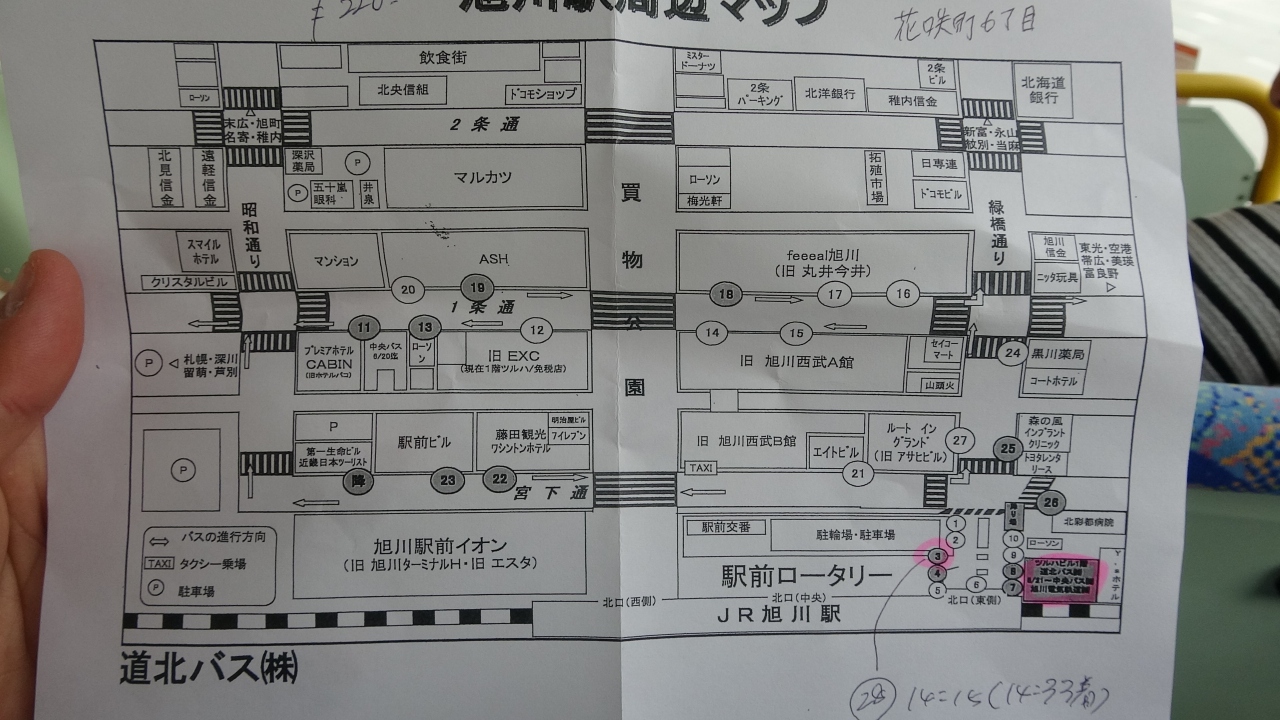 旭川駅周辺マップ
花咲町6丁目
飲食街
北央信組
ドコモショップ
ローソン
ミスタードーナツ
2条パーキング
北洋銀行
2条ビル
稚内信金
北海道銀行
末広・旭町
名寄・稚内
2条通
新富・永山
紋別・当麻
北見信金
遠軽信金
深沢薬局
P
P
五十嵐眼科
井泉
マルカツ
ローソン
梅光軒
拓殖市場
日専連
ドコモビル
昭和通り
買物公園
緑橋通り
スマイルホテル
クリスタルビル
マンション
ASH
feeeal旭川
(旧 丸井今井)
旭川信金
ニッタ玩具
東光・空港
帯広・美瑛
富良野
20
19
18
17
16
1条通
11
13
12
14
15
P
札幌・深川
留萌・芦別
プレミアホテル
CABIN
(旧ホテルパコ)
中央バス
6/20迄
ローソン
旧 EXC
(現在1階ツルハ/免税店)
旧 旭川西武A館
セイコーマート
山頭火
24
黒川薬局
コートホテル
P
P
第一生命ビル
近畿日本ツーリスト
駅前ビル
藤田観光
ワシントンホテル
明治屋ビル
7イレブン
旧 旭川西武B館
TAXI
エイトビル
ルート イン
グランド
(旧 アサヒビル)
27
25
森の風
インプラント
クリニック
トヨタレンタ
リース
降
23
22
宮下通
21
26
バスの進行方向
TAXI タクシー乗場
P 駐車場
旭川駅前イオン
(旧 旭川ターミナルH・旧 エスタ)
駅前交番
駐輪場・駐車場
駅前ロータリー
1
2
3
4
5
6
降り場
10
9
8
7
北彩都病院
ローソン
ツルハビル1階
道北バス㈱
6/21〜中央バス㈱
旭川電気軌道㈱
北口(西側)
北口(中央)
北口(東側)
JR旭川駅
道北バス㈱